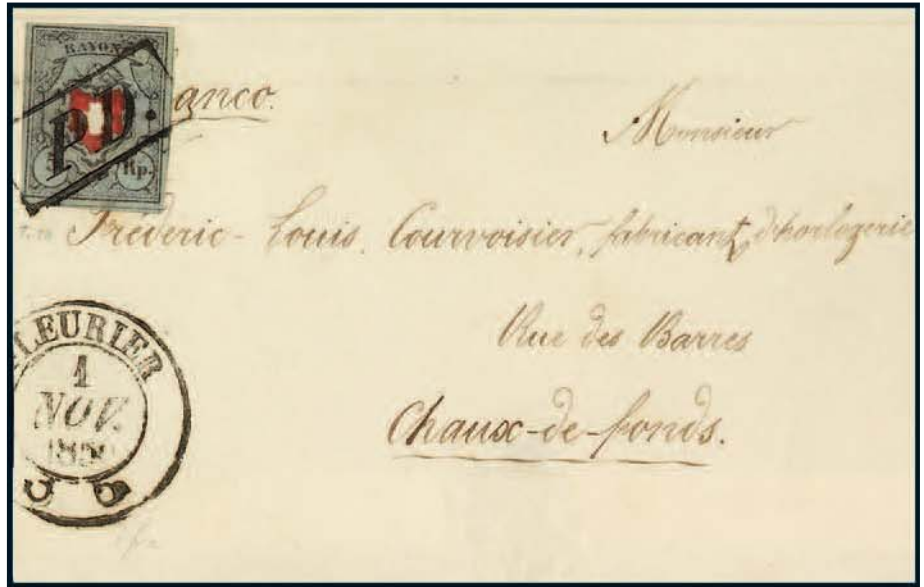 RAYON
PD.
Rp.
anco.
Monsieur
Fréderic-Louis Courvoisier, fabricant d'horlogerie
Rue des Barres
Chaux-de-fonds.
FLEURIER
1
NOV.
1850